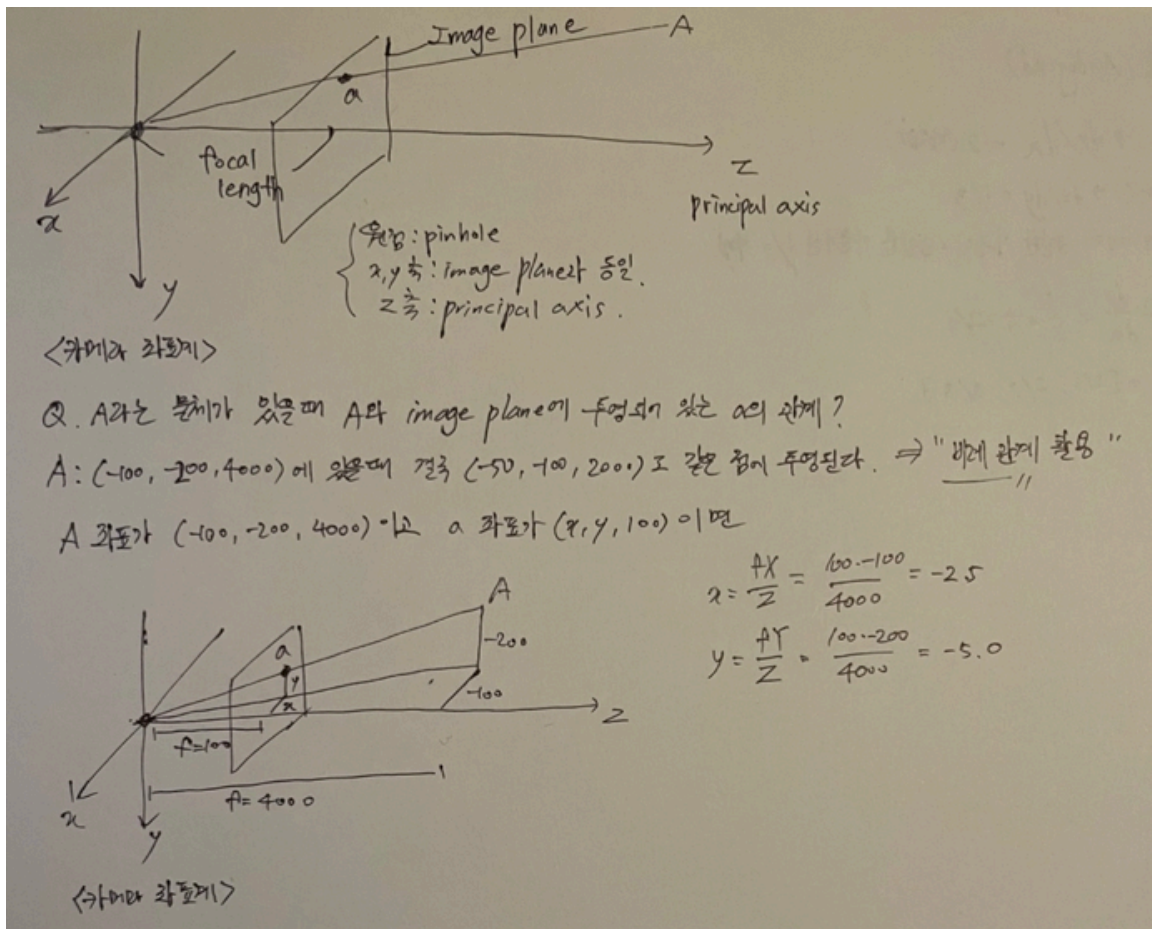 Image plane
A
a
focal
length
x
y
z
principal axis
원점 : pinhole
x, y축 : image plane과 동일.
z축 : principal axis.
<카메라 좌표계>
Q. A라는 물체가 있을때 A와 image plane에 투영되어 있는 a의 관계?
A : (-100, -200, 4000)에 있을때 결국 (-50, -100, 2000)도 같은 점에 투영된다. ⇒ "비례 관계 활용"
A 좌표가 (-100, -200, 4000)이고 a 좌표가 (x, y, 100)이면
x = fX/Z = 100·-100/4000 = -2.5
y = fY/Z = 100·-200/4000 = -5.0
A
-200
a
y
x
-100
z
f=100
f=4000
x
y
<카메라 좌표계>